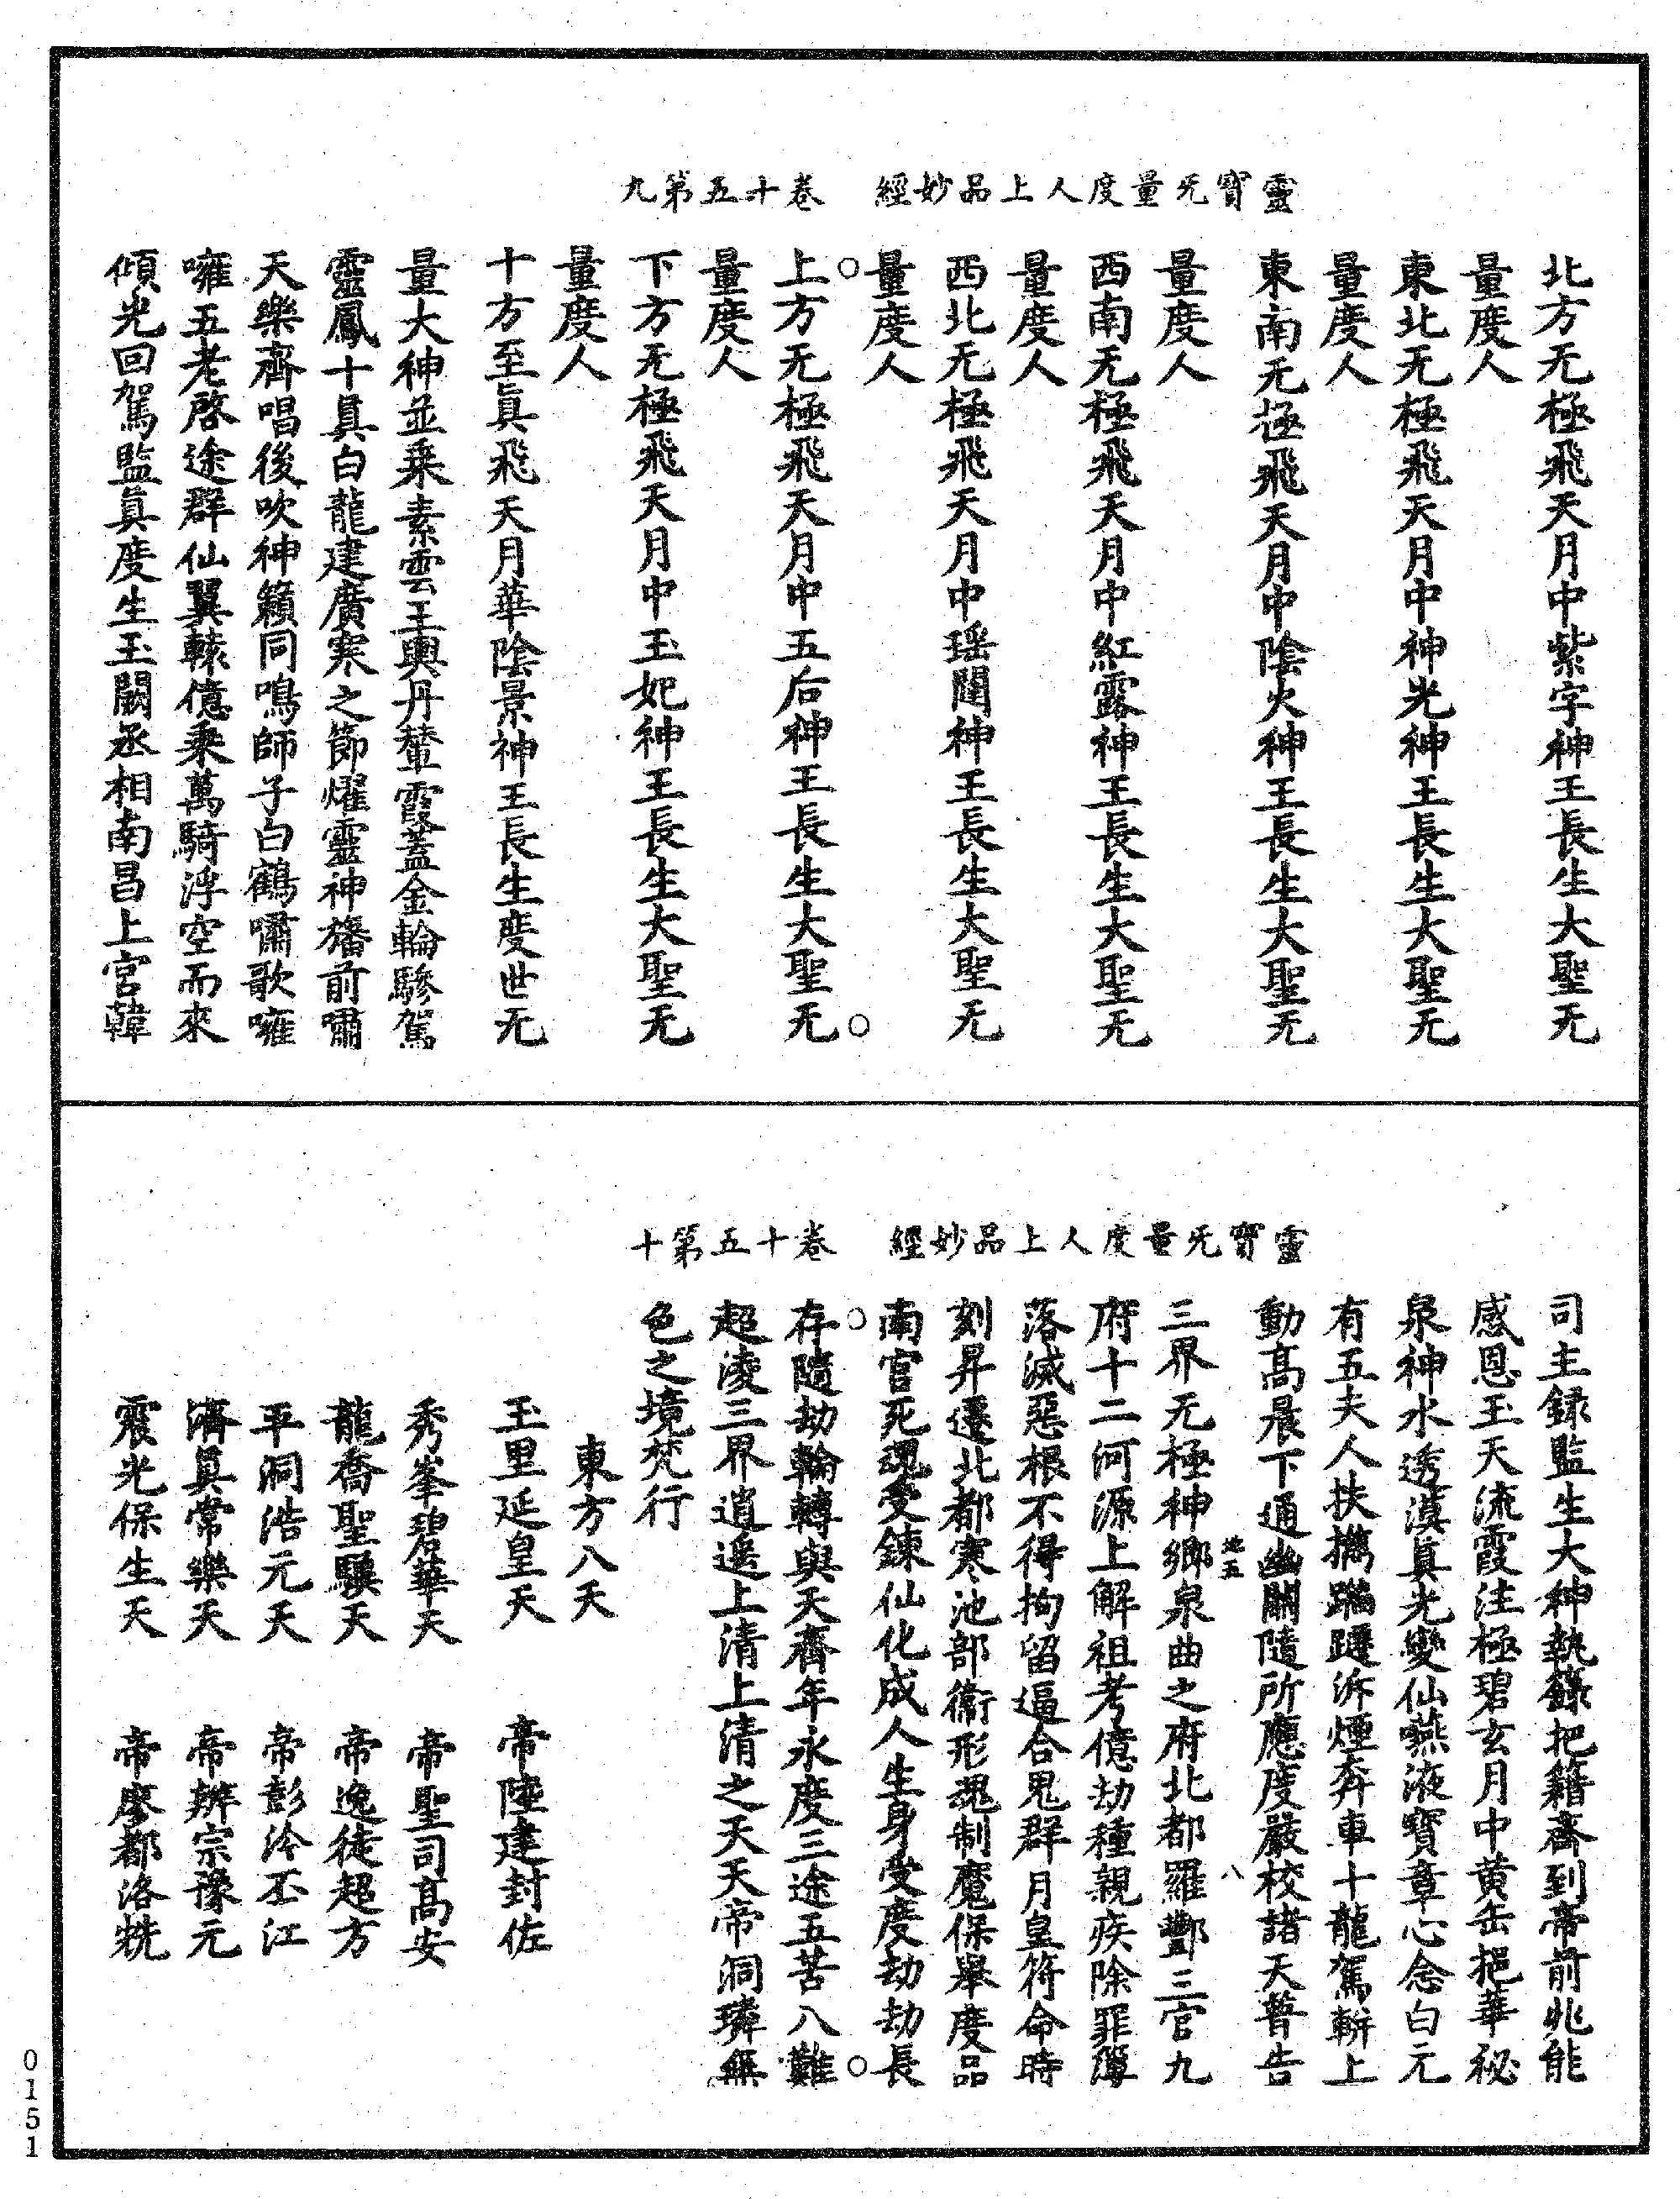 靈寳无量度人上品妙經　卷十五第九
北方无極飛天月中紫字神王長生大聖无
量度人
東北无極飛天月中神光神王長生大聖无
量度人
東南无極飛天月中陰火神王長生大聖无
量度人
西南无極飛天月中紅露神王長生大聖无
量度人
西北无極飛天月中瑶闕神王長生大聖无
量度人
上方无極飛天月中五后神王長生大聖无
量度人
下方无極飛天月中玉妃神王長生大聖无
量度人
十方至眞飛天月華陰景神王長生度世无
量大神並乗素雲玉輿丹輦霞蓋金輪驂駕
靈鳳十眞白龍建廣寒之節燿靈神旛前嘯
天樂齊唱後吹神籟同鳴師子白鶴嘯歌嗈
嗈五老啓途群仙翼轅億乗萬騎浮空而來
傾光回駕監眞度生玉闕丞相南昌上宮韓
靈寳无量度人上品妙經　卷十五第十
司主録監生大神執籙把籍齋到帝前兆能
感恩玉天流霞洼極碧玄月中黄缶挹華祕
泉神水透漢眞光變仙嚥液寳章心念白元
有五夫人扶攜躡躚泝煙奔車十龍駕軿上
動髙晨下通幽關隨所應度嚴校諸天普告
地五　八
三界无極神鄉泉曲之府北都羅酆三官九
府十二河源上解祖考億劫種親疾除罪簿
落滅惡根不得拘留逼合鬼群月皇符命時
刻昇遷北都寒池部衛形魂制魔保舉度品
南宫死魂受鍊仙化成人生身受度劫劫長
存隨劫輪轉與天齊年永度三途五苦八難
超凌三界逍遥上清上清之天天帝洞璘無
色之境梵行
東方八天
玉里延皇天　帝陸建封佐
秀峯碧華天　帝聖司髙安
龍喬聖驥天　帝逸徒超方
平洞浩元天　帝彭泠丕江
濟眞常樂天　帝辨宗豫元
震光保生天　帝廖都洛牪
0151